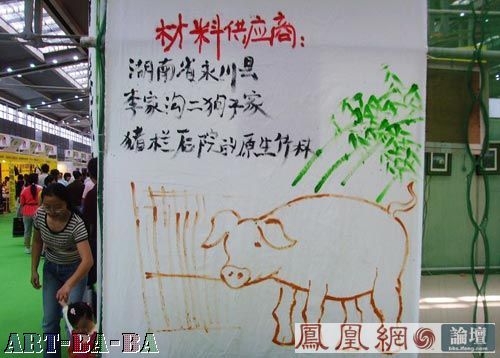 材料供应商:
湖南省永川县
李家沟二狗子家
猪栏后院的原生竹料
ART-BA-BA
鳳凰網
論壇
bbs.ifeng.com